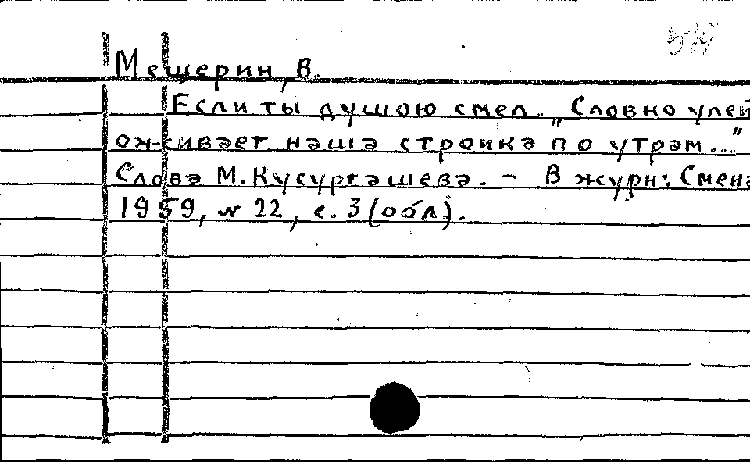 Мещерин, В.
Если ты душою смел. „Словно улей
оживает наша стройка по утрам..."
Слова М. Кусургашева. - В журн: Смена
1959, № 22, с. 3 (обл).